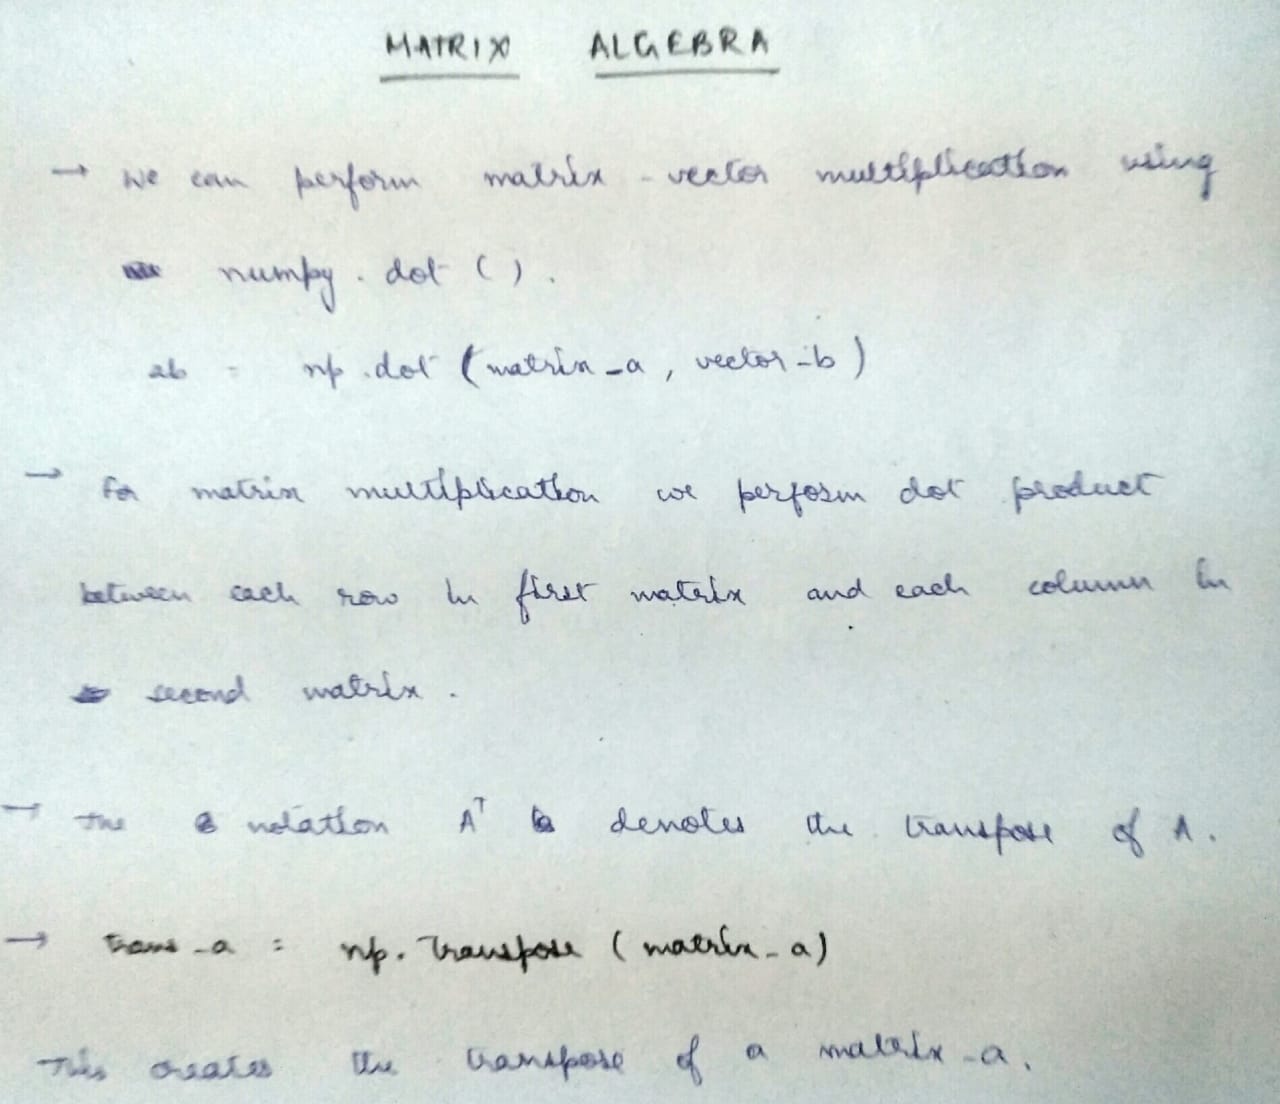 MATRIX ALGEBRA
→ we can perform matrix-vector multiplication using
numpy.dot().
ab = np.dot (matrix_a, vector_b)
→ for matrix multiplication we perform dot product
between each row in first matrix and each column in
second matrix.
→ The notation Aᵀ denotes the transpose of A.
→ trans_a = np.transpose (matrix_a)
This creates the transpose of a matrix_a.